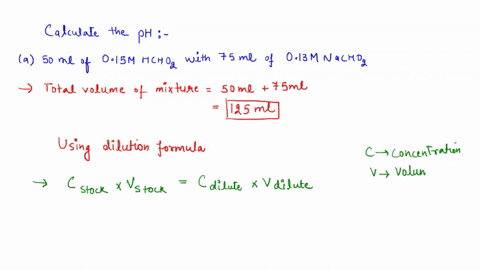 Calculate the pH :-
(a) 50 ml of 0.15M HCHO2 with 75 ml of 0.13M NaCHO2
→ Total volume of mixture = 50ml + 75ml
= 125 ml
Using dilution formula
C → Concentration
V → Volum
→ C stock x V stock = C dilute x V dilute